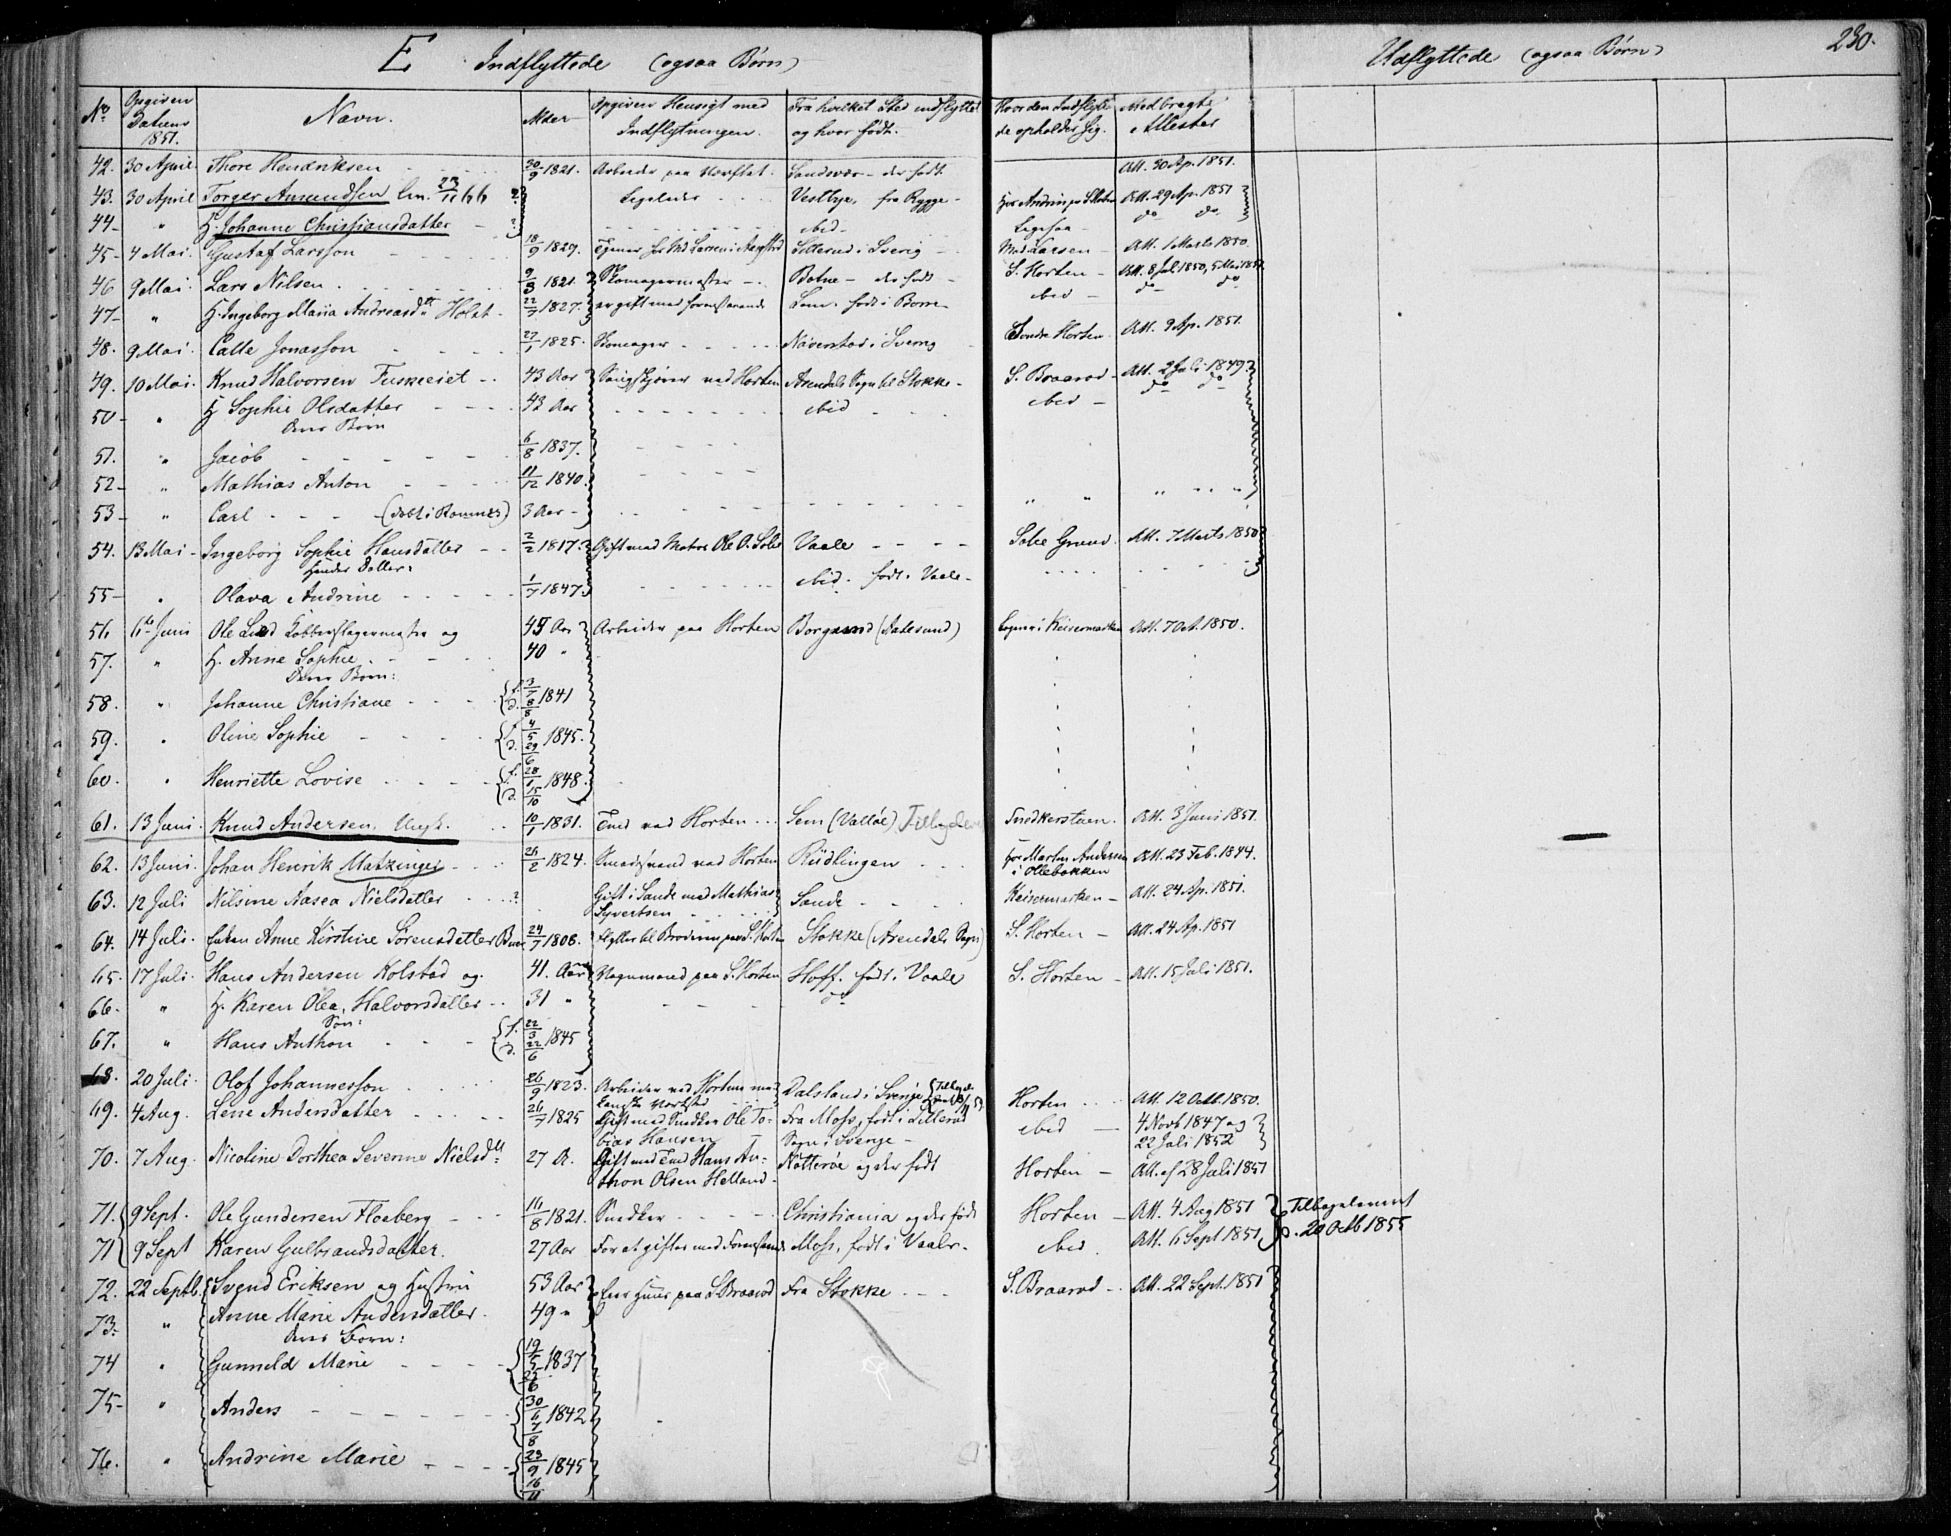 E Indflyttede (ogsaa Børn)
Udflyttede (ogsaa Børn) 230.
No. Opgiven Datum 1851. Navn. Alder Opgiven Hensigt med Indflytningen. Fra hvilket Sted indflyttet og hvor født. Hvor den Indflyttede opholder sig. Medbragte Attester
42. 30 April Thore Hendriksen 30/9 1821. Arbeider paa Værftet. Sandsvær - der født Att. 30 Ap. 1851.
43. 30 April Torger Amundsen ? Ligeledes Vestbye, fra Rygge - Att. 29 Ap. 1851
44 - " H. Johanne Christiansdatter - ? ibid - Ligesaa - do do.
45 - 7 Mai. Gustaf Larsson 18/9 1829. Sverig - Med Larsen - Att. 1 Marts 1850.
46 9 Mai. Lars Nilsen 9/3 1821. Skomagermester - Botne - der født - S. Horten - Att. 8 Jul 1850, 5 Mai 1851
47 - " H. Ingeborg Maria Andreasdtt Holst - 22/7 1827. er gift med foranstaaende Sem - født i Borre - ibid - do do
48. 9 Mai. Calle Jonasson 27/1 1825. Skomager Näverstad i Sverrig Søndre Horten. Att. 9 Ap. 1851.
49. 10 Mai. Knud Halvorsen 43 Aar ved Horten Arendals Sogn til Stokke - S. Braarød - Att. 2 Juli 1849
50 - " H. Sophie Olsdatter 42 Aar ibid ibid - do do
Deres Børn
51. " Jacob 6/8 1837.
52 - " Mathias Anton 11/12 1840.
53 - " Carl (døbt i Ramnes) 3 Aar - " " " " "
54. 13 Mai - Ingeborg Sophie Hansdatter 2/2 1817. Gift med Matros Ole A. Solie Vaale Solie Grund. Att. 7 Marts 1850
Hendes Datter:
55 - " Olava Andrine 1/7 1847. ibid. født i Vaale -
56 6te Juni Ole Lund Kobberslagermester og 45 Aar Arbeider paa Horten Borgund (Aalesund) Keisermarken Att. 7 Oct. 1850.
57. " H. Anne Sophie 40 "
Deres Børn:
58. " Johanne Christiane f. 3/7 d. 8/8 1841
59. " Oline Sophie f. 4/5 d. 29/6 1845.
60. " Henriette Lovise f. 28/1 d. 15/10 1848.
61. 13 Juni. Knud Andersen, Ungk. 10/1 1831. Tmd ved Horten Sem (Valløe) Snedkerstuen. Att. 3 Juni 1851.
62. 13 Juni. Johan Henrik Matzinger 26/2 1824. Smedsvend ved Horten Rüdlingen Hos Martin Andersen i Ollebakken Att. 23 Feb. 1844.
63. 12 Juli Nilsine Aasea Nielsdatter ? Gift i Sande med Mathias Syvertsen Sande Keisermarken - Att. 24 Ap. 1851.
64. 14 Juli. Enken Anne Kirstine Sørensdatter 24/7 1808. flytter til Broderen paa S. Horten Stokke (Arendals Sogn) S. Horten - Att. 24 Ap. 1851
65. 17 Juli. Hans Andersen Kolstad og 41. Aar Vognmand paa S. Horten Hoff. født i Vaale S. Horten - Att. 15 Juli 1851.
66. " H. Karen Olea, Halvorsdatter 31 " do
Søn:
67. " Hans Anthon f. 22/3 d. 22/6 1845
68. 20 Juli. Olof Johannesson 26/9 1823. Arbeider ved Hortens Dalsland i Sverige Horten Att. 12 Oct. 1850.
69. 4 Aug. Lene Andersdatter 26/7 1825 Gift med Snedker Ole Tobias Hansen Fra Moss, født i Sogn i Sverige - ibid - 4 Novb 1847 og 22 Juli 1852
70. 7 Aug. Nicoline Dorthea Severine Nielsdtt 27 A. Gift med Tmd Hans Anthon Olsen Helland - Nøtterøe og der født Horten - Att. af 28 Juli 1851
71. 9 Sept. Ole Gundersen Floeberg 16/8 1821. Snedker Christiania og der født Horten - Att. 4 Aug 1851 Tilbageleveret
71 9 Sept Karen Gulbrandsdatter. 27 Aar For at giftes med Foranstaaende Moss, født i Vaaler - ibid. Att. 6 Sept 1851, d. 20 Octb 1855
72. 22 Septb. Svend Eriksen og Hustru 53 Aar eier Huus paa S. Braarød Fra Stokke S. Braarød - Att. 22 Sept. 1851
73. " Anne Marie Andersdatter. 49 "
Deres Børn:
74 " Gunnild Marie 19/5 25/6 1837
75 - " Anders 30/6 7/8 1842
76. " Andrine Marie 23/9 16/11 1845